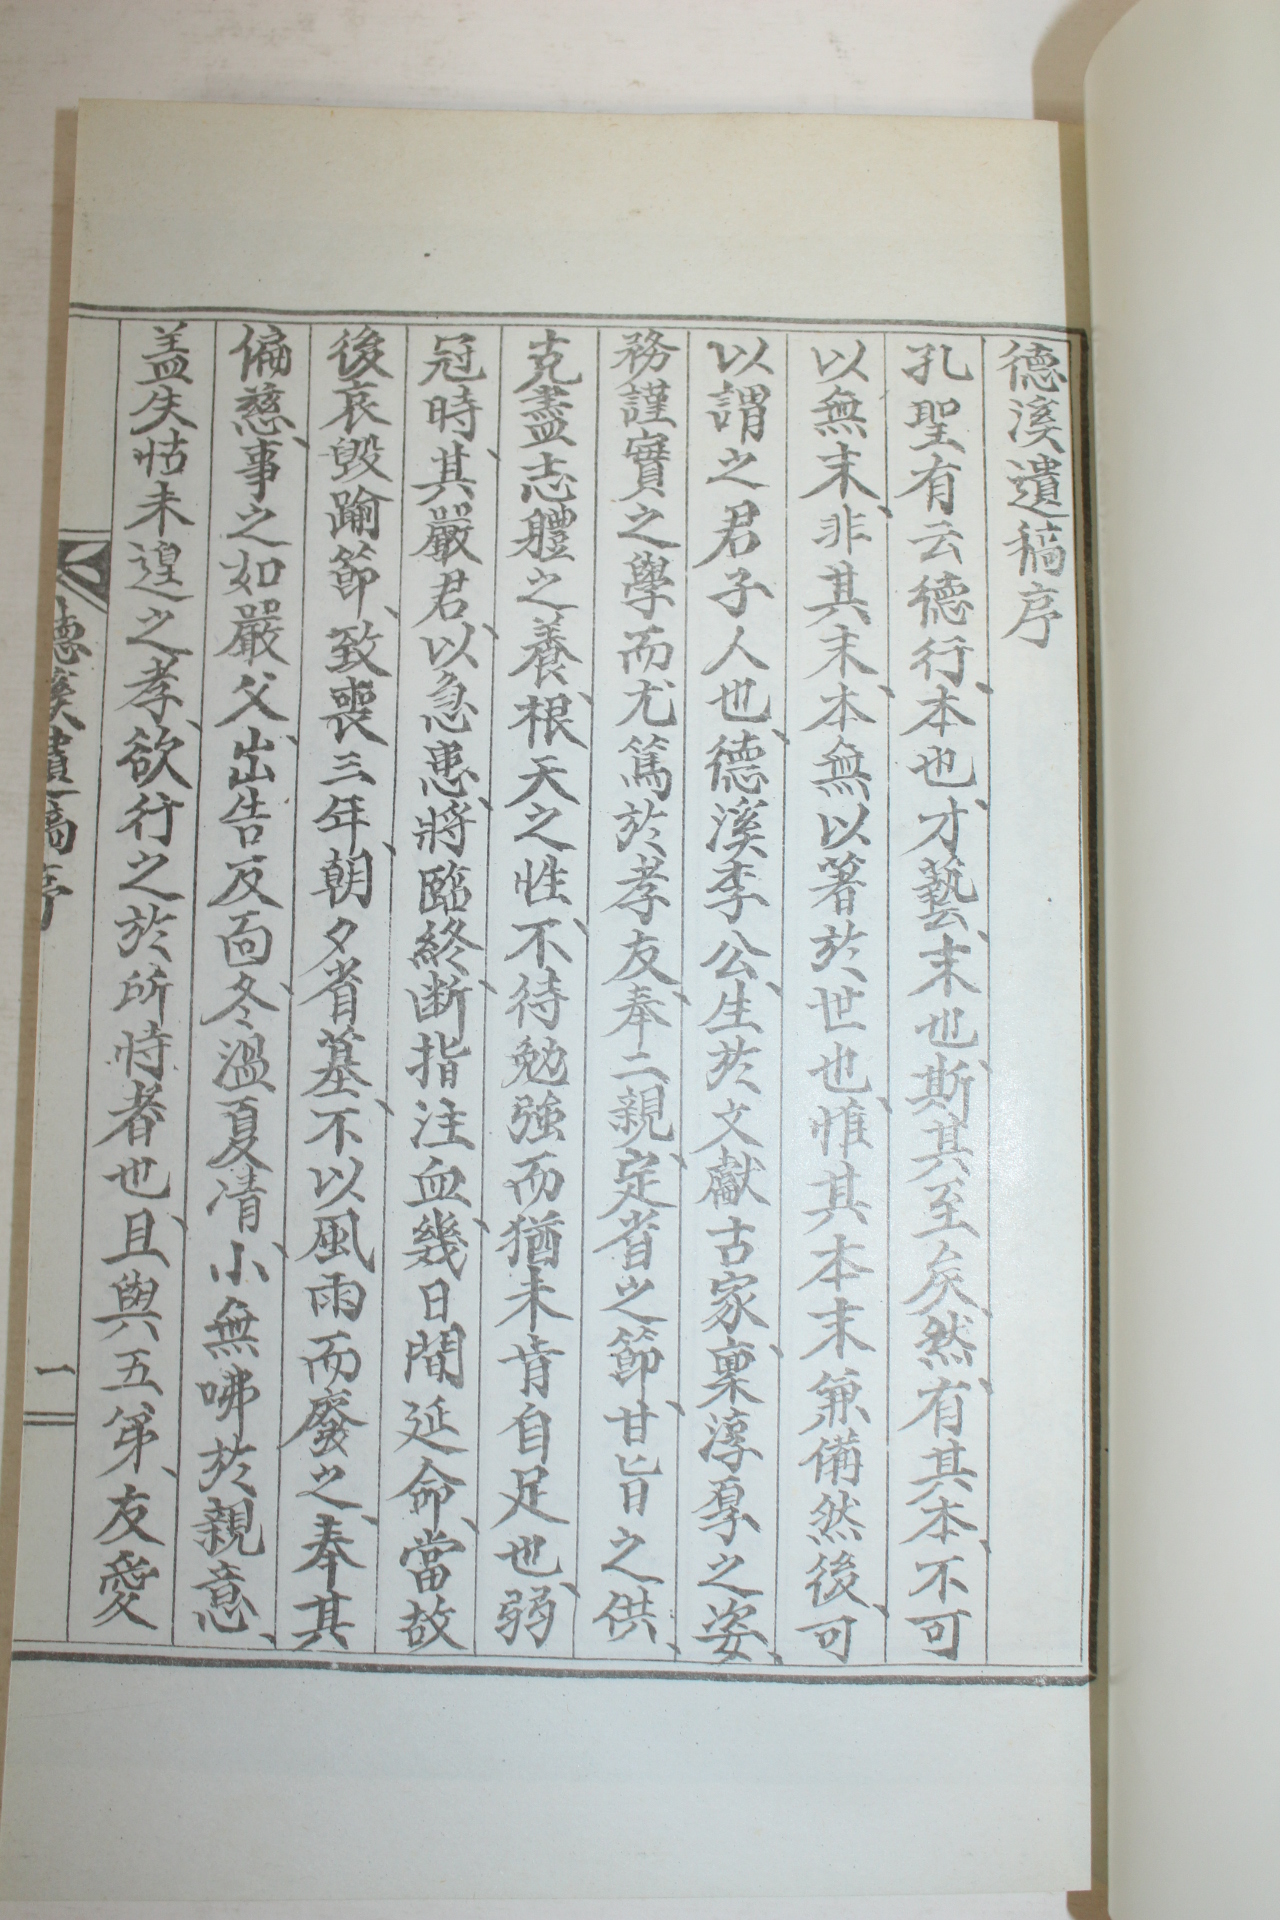 德溪遺稿序
孔聖有云德行、本也、才藝、末也、斯其至矣、然、有其本、不可
以無末、非其末、本無以著於世也、惟其本末兼備然後、可
以謂之君子人也、德溪李公、生於文獻古家、稟淳厚之姿、
務謹實之學而尤篤於孝友、奉二親、定省之節、甘旨之供、
克盡志體之養、根天之性、不待勉強而猶未肯自足也、弱
冠時、其嚴君、以急患、將臨終、斷指注血、幾日間延命、當故
後哀毁踰節、致喪三年、朝夕省墓、不以風雨而廢之、奉其
偏慈、事之如嚴父、出告反面、冬溫夏凊、小無咈於親意、
盖失怙未遑之孝、欲行之於所恃者也、且與五弟、友愛
德溪遺稿序
一